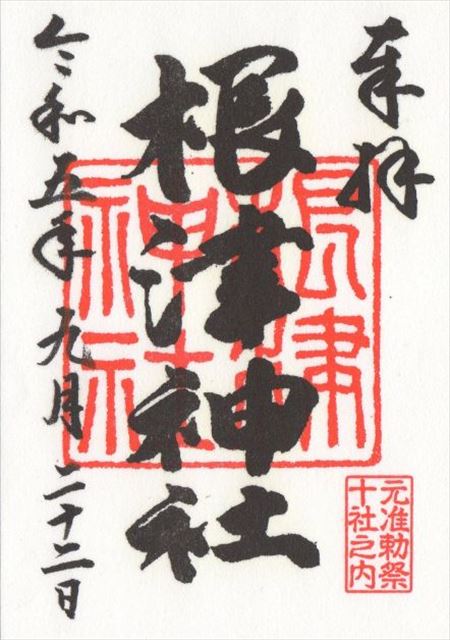 奉拝
根津神社
令和五年九月二十二日
根津神社
元准勅祭
十社之内